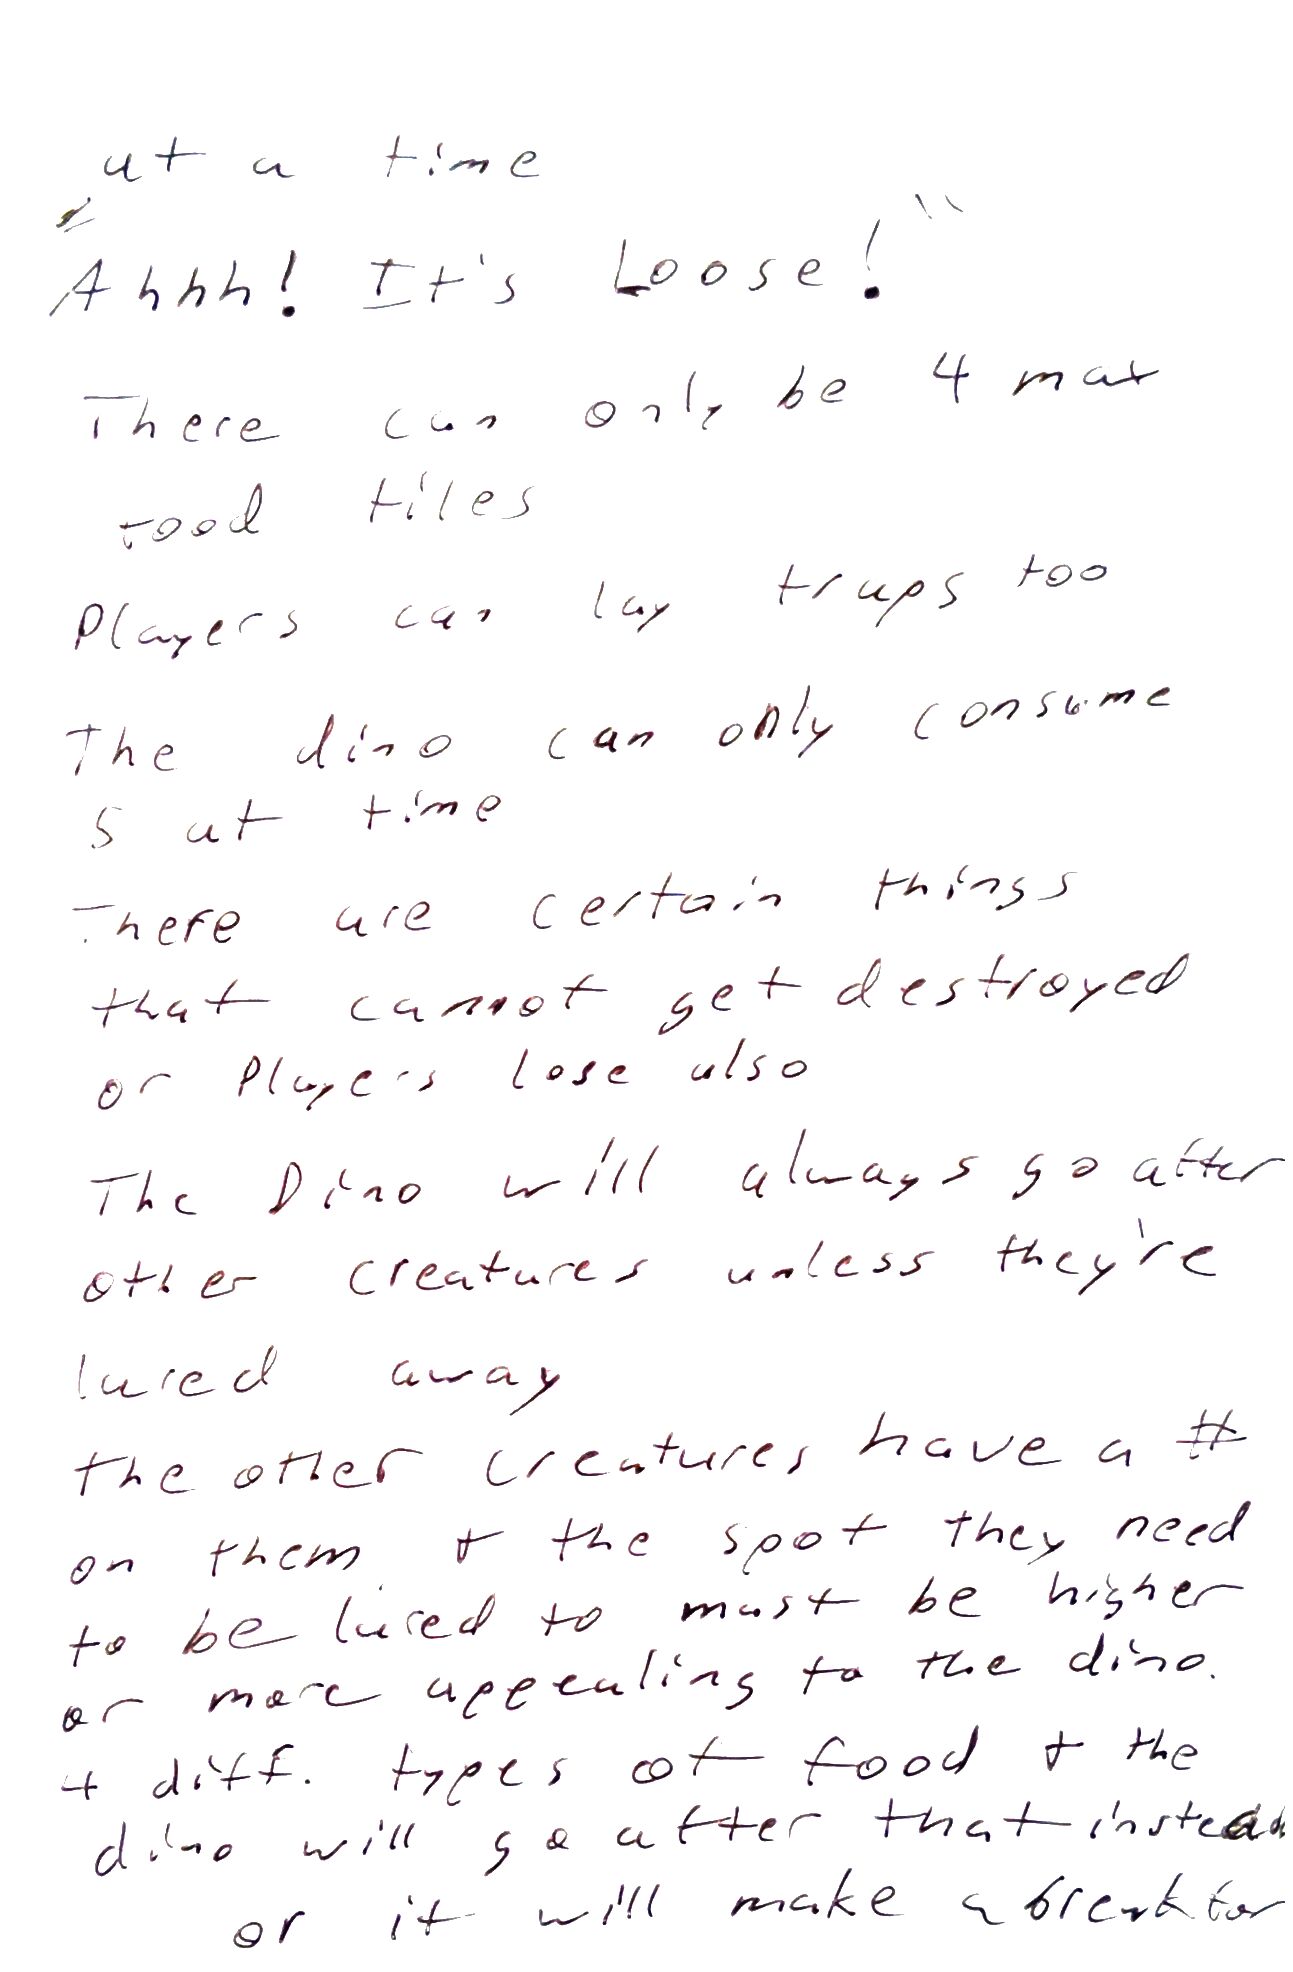 at a time
"Ahhh! It's Loose!"
There can only be 4 max
food tiles
Players can lay traps too
The dino can only consume
5 at time
There are certain things
that cannot get destroyed
or Players lose also
The Dino will always go after
other creatures unless they're
lured away
the other creatures have a #
on them & the spot they need
to be lured to must be higher
or more appealing to the dino.
4 diff. types of food & the
dino will go after that instead
or it will make a break for